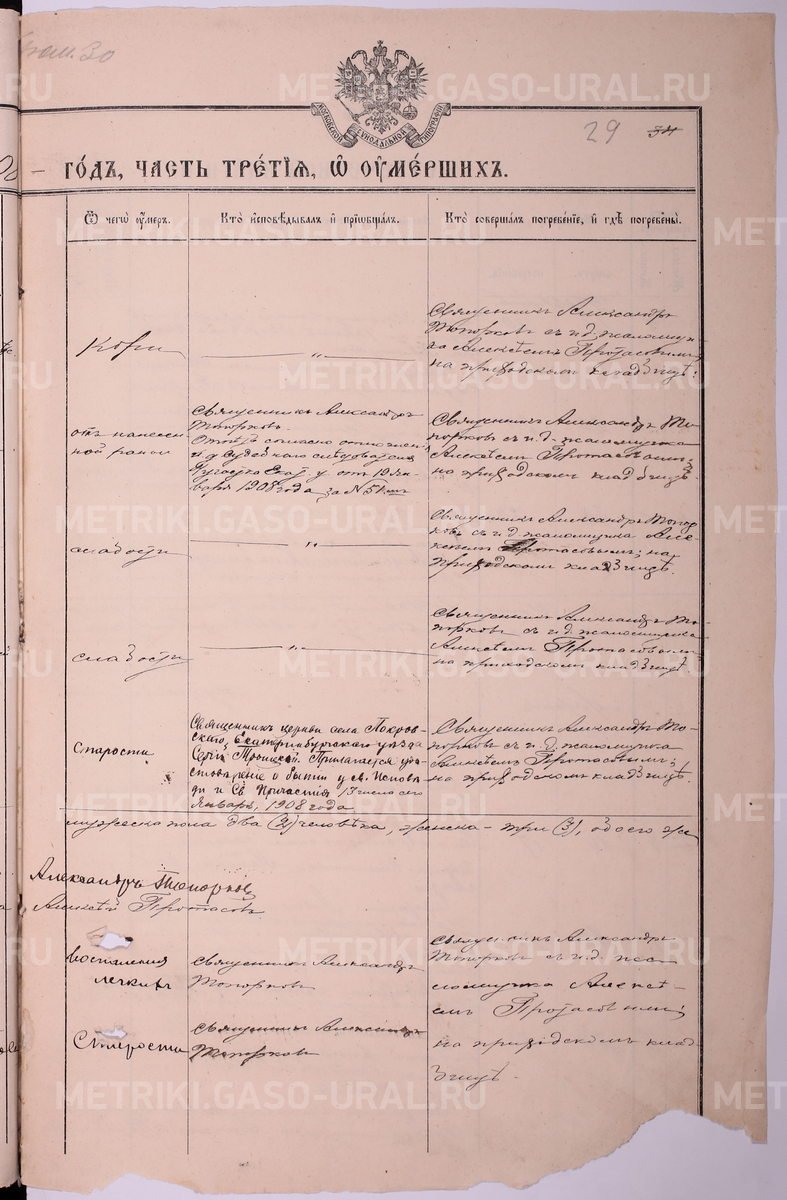 29
МОСКОВСКОЙ СѴНОДАЛЬНОЙ ТИПОГРАФІИ
ГО́ДЪ, ЧАСТЬ ТРЕ́ТІЯ, Ѡ҆ ОУ҆МЕ́РШИХЪ.
Ѿ чегѡ̀ оу҆́меръ.
Кто̀ и҆сповѣ́дывалъ и҆ пріѡбща́лъ.
Кто̀ соверша́лъ погребе́ніе, и҆ гдѣ̀ погребены̀.
Кори
"
Священникъ Александръ
Топорковъ съ и.д. псаломщи
ка Алексѣемъ Протасовымъ;
на приходскомъ кладбищѣ.
отъ нанесен
ной раны
Священникъ Александръ
Топорковъ.
согласно
и.д. Судебнаго слѣдователя
участка Екат. у. отъ 19 Ян
варя 1908 года за № 51
Священникъ Александръ То
порковъ съ и.д. псаломщика
Алексѣемъ Протасовымъ;
на приходскомъ кладбищѣ.
слабости
"
Священникъ Александръ Топор
ковъ съ и.д. псаломщика Але
ксѣемъ Протасовымъ; на
приходскомъ кладбищѣ.
слабости
"
Священникъ Александръ То
порковъ съ и.д. псаломщика
Алексѣемъ Протасовымъ
на приходскомъ кладбищѣ
Старости
Священникъ церкви села Покров
скаго, Екатеринбургскаго уѣзда
Сергій Троицкій. Прилагается удо
стовѣреніе о бытіи у св. Исповѣ
ди и Св Причастія 13 числа сего
Январь, 1908 года.
Священникъ Александръ То
порковъ съ и.д. псаломщика
Алексѣемъ Протасовымъ;
на приходскомъ кладбищѣ.
мужеска пола два (2) человѣка, женска - три (3), обоего же
Александръ Топорковъ
Алексѣй Протасовъ
воспаленія
легкихъ
Священникъ Александръ
Топорковъ
Священникъ Александръ
Топорковъ съ и.д. пса
ломщика Алексѣ
емъ Протасовымъ;
на приходскомъ клад
бищѣ.
Старости
Священникъ Александръ
Топорковъ
METRIKI.GASO-URAL.RU